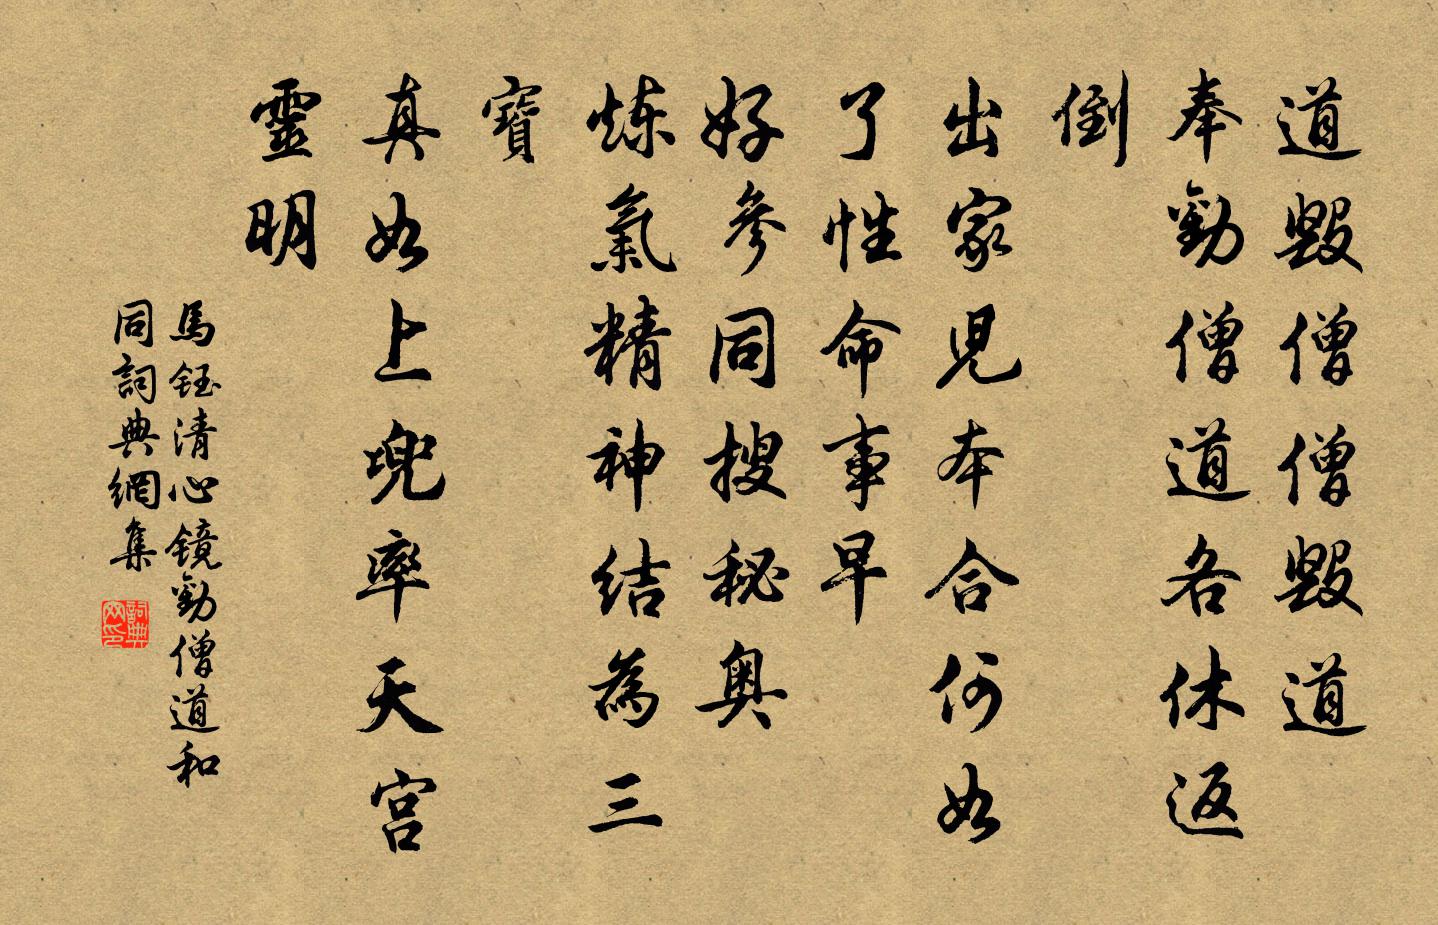 道毀僧僧毀道
奉勸僧道各休返
倒
出家兒本合何如
了性命事早
好參同搜秘奥
炼氣精神结為三
寶
真如上兜率天宫
靈明
馬鈺清心镜勸僧道和
同詞典網集
詞典
网印